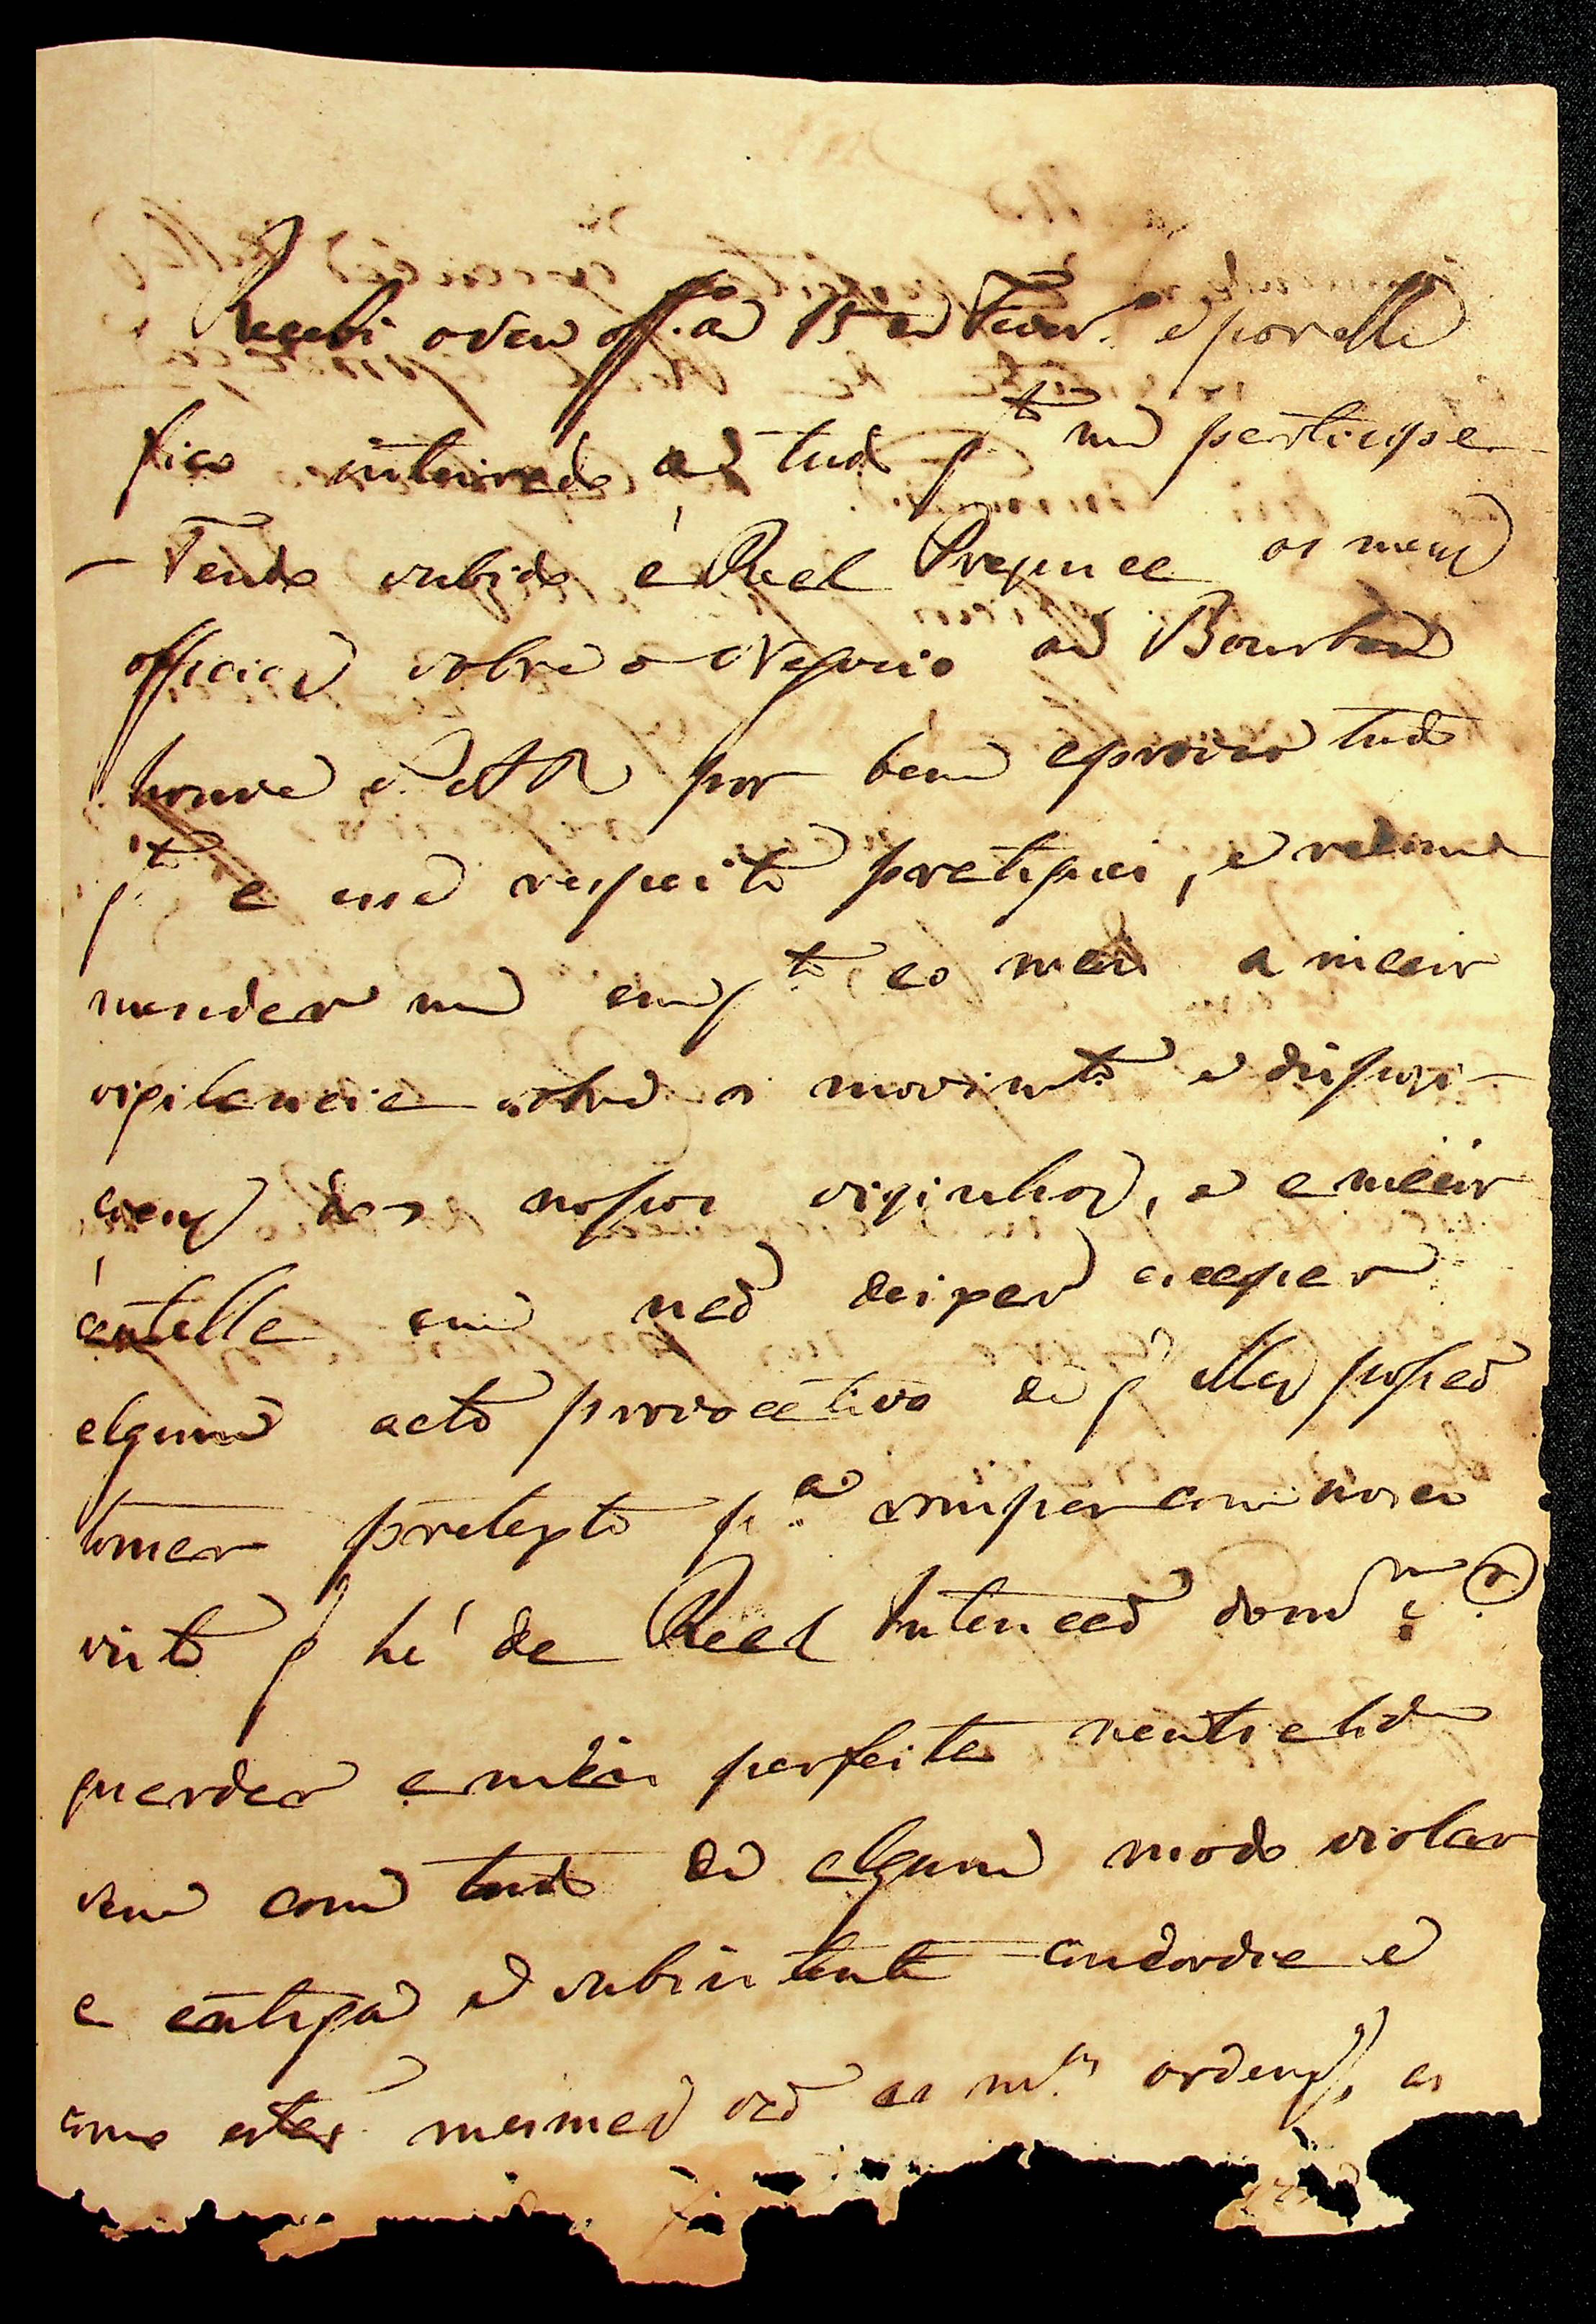 Recebi o seu off.º de 15 de Fever.º e por elle
fico inteirado de tudo q.to me participa
– Tendo subido á Real Presença os meus
officios sobre o Negocio de Bourbon
houve S. A. R. por bem aprovar tudo
q.to a esse respeito pratiquei, e recomenda
mandar me em q.to ao mais a maior
vigilancia sobre os movim.tos e dispozi-
çoens dos nossos vizinhos, e a maior
cautella em não deixar escapar
algum acto provocativo de q̃ elles possão
tomar pretexto p.a romper com nosco
visto q̃ hé da Real Intenção do m.mo S.r
guardar a mais perfeita neutralid.e
sem com tudo de algum modo violar
a antiga e subsistente concordia e
como estas mesmas são as m.mas ordens, as